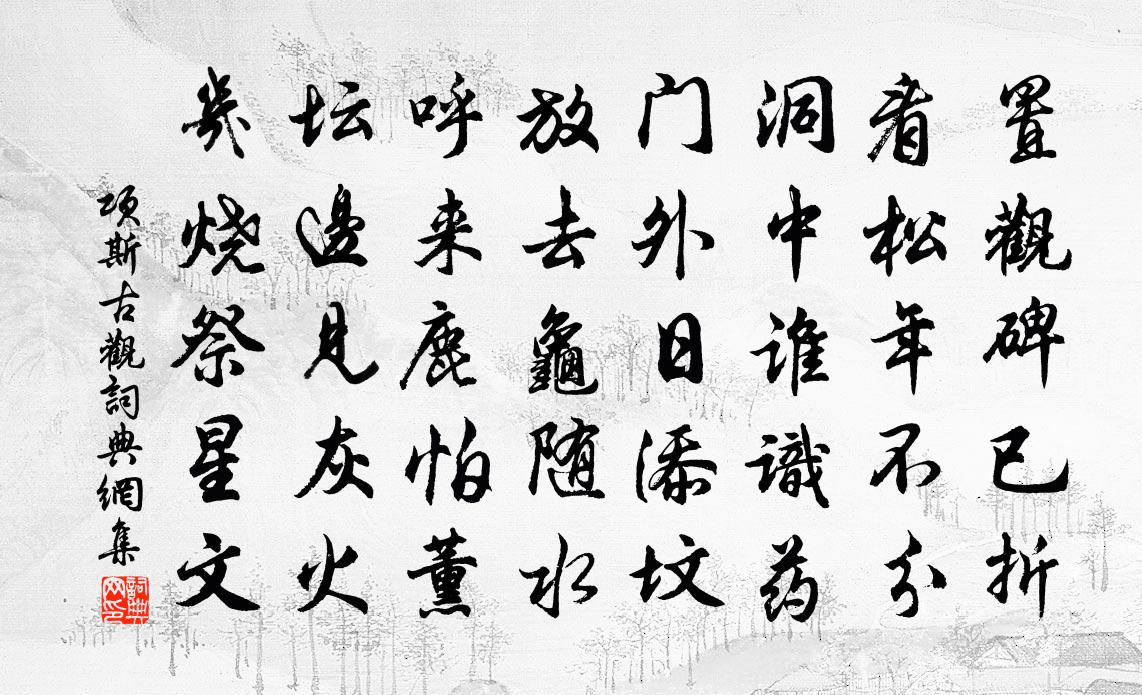 置觀碑已折
看松年不分
洞中谁識药
门外日添坟
放去龜随水
呼来鹿怕薰
坛边見灰火
几烧祭星文
项斯古觀詞典網集
詞典